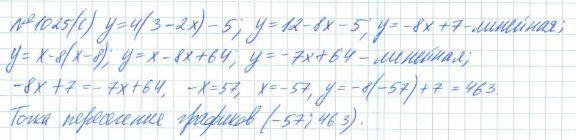 №1025(с) y=4(3-2x)-5; y=12-8x-5; y=-8x+7-линейная;
y=x-8(x-8); y=x-8x+64; y=-7x+64-линейная;
-8x+7=-7x+64, -x=57, x=-57, y=-8(-57)+7=463
Точка пересечение графиков (-57; 463).